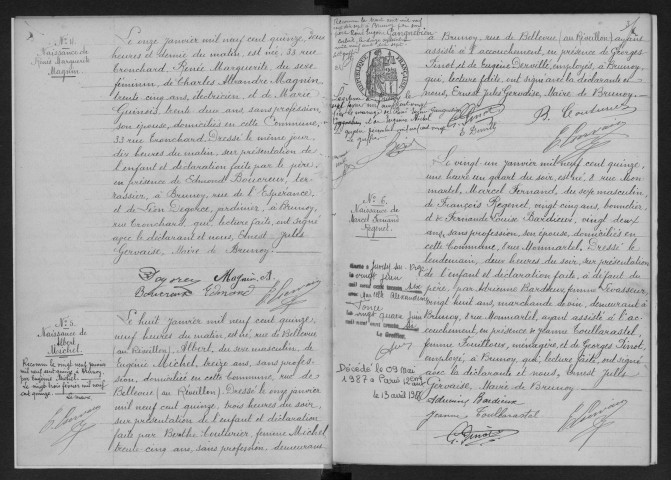 N° 4.
Naissance de
Renée Marguerite
Magnin
Le onze janvier mil neuf cent quinze, deux
heures et demie du matin, est née, 33 rue
Tronchard, Renée Marguerite du sexe
féminin, de Charles Alexandre Magnin
trente cinq ans, électricien, et de Marie
Guinois, trente deux ans, sans profession,
son épouse, domiciliés en cette Commune,
33 rue Tronchard. Dressé le même jour,
dix heures du matin, sur présentation de
l'enfant et déclaration faite par le père;
en présence de Edmond Boucreux, ter-
rassier, à Brunoy, rue de l'Espérance,
et de Léon Degorce, jardinier, à Brunoy,
rue Tronchard, qui, lecture faite, ont signé
avec le déclarant et nous, Ernest Jules
Gervaise, Maire de Brunoy.
Degorce Magnin
Boucreux Edmond
N° 5.
Naissance de
Albert
Michel
Reconnu le vingt neuf janvier
mil neuf cent quinze, à Brunoy
par Eugénie Michel
le vingt trois février mil neuf
cent quinze.
Le huit janvier mil neuf cent quinze,
neuf heures du matin, est né, rue de Bellevue
(au Réveillon), Albert, du sexe masculin, de
Eugénie Michel, treize ans, sans profes-
sion, domiciliée en cette commune, rue de
Bellevue (au Réveillon). Dressé le onze janvier
mil neuf cent quinze, trois heures du soir,
sur présentation de l'enfant et déclaration
faite par Berthe Couturier, femme Michel
trente cinq ans, sans profession, demeurant
à Brunoy, rue de Bellevue (au Réveillon) ayant
assisté à l'accouchement, en présence de Georges
Pinot et de Eugénie Derville, employé, à Brunoy,
qui, lecture faite, ont signé avec la déclarante et
nous, Ernest Jules Gervaise, Maire de Brunoy.
G. Pinot
B. Couturier
E. Derville
N° 6.
Naissance de
Marcel Fernand
Regenet.
Le vingt un janvier mil neuf cent quinze,
une heure un quart du soir, est né, 2 rue Mon-
martel, Marcel Fernand, du sexe masculin,
de François Regenet, vingt cinq ans, boucher
et de Fernande Louise Bardieux, vingt deux
ans, sans profession, son épouse, domiciliés en
cette commune, 2 rue Monmartel. Dressé le
lendemain, deux heures du soir, sur présentation
de l'enfant et déclaration faite, à défaut du
père, par Adrienne Bardieux, femme Levasseur,
vingt huit ans, marchande de vin, demeurant à
Brunoy, 2 rue Monmartel, ayant assisté à l'ac-
couchement, en présence de Jeanne Toullarastel,
femme Fouilloux, ménagère, et de Georges Pinot,
employé, à Brunoy, qui, lecture faite, ont signé
avec la déclarante et nous, Ernest Jules
Gervaise, Maire de Brunoy.
Adrienne Bardieux
Jeanne Toullarastel
G. Pinot
Décédé le 09 mai
1987 à Paris